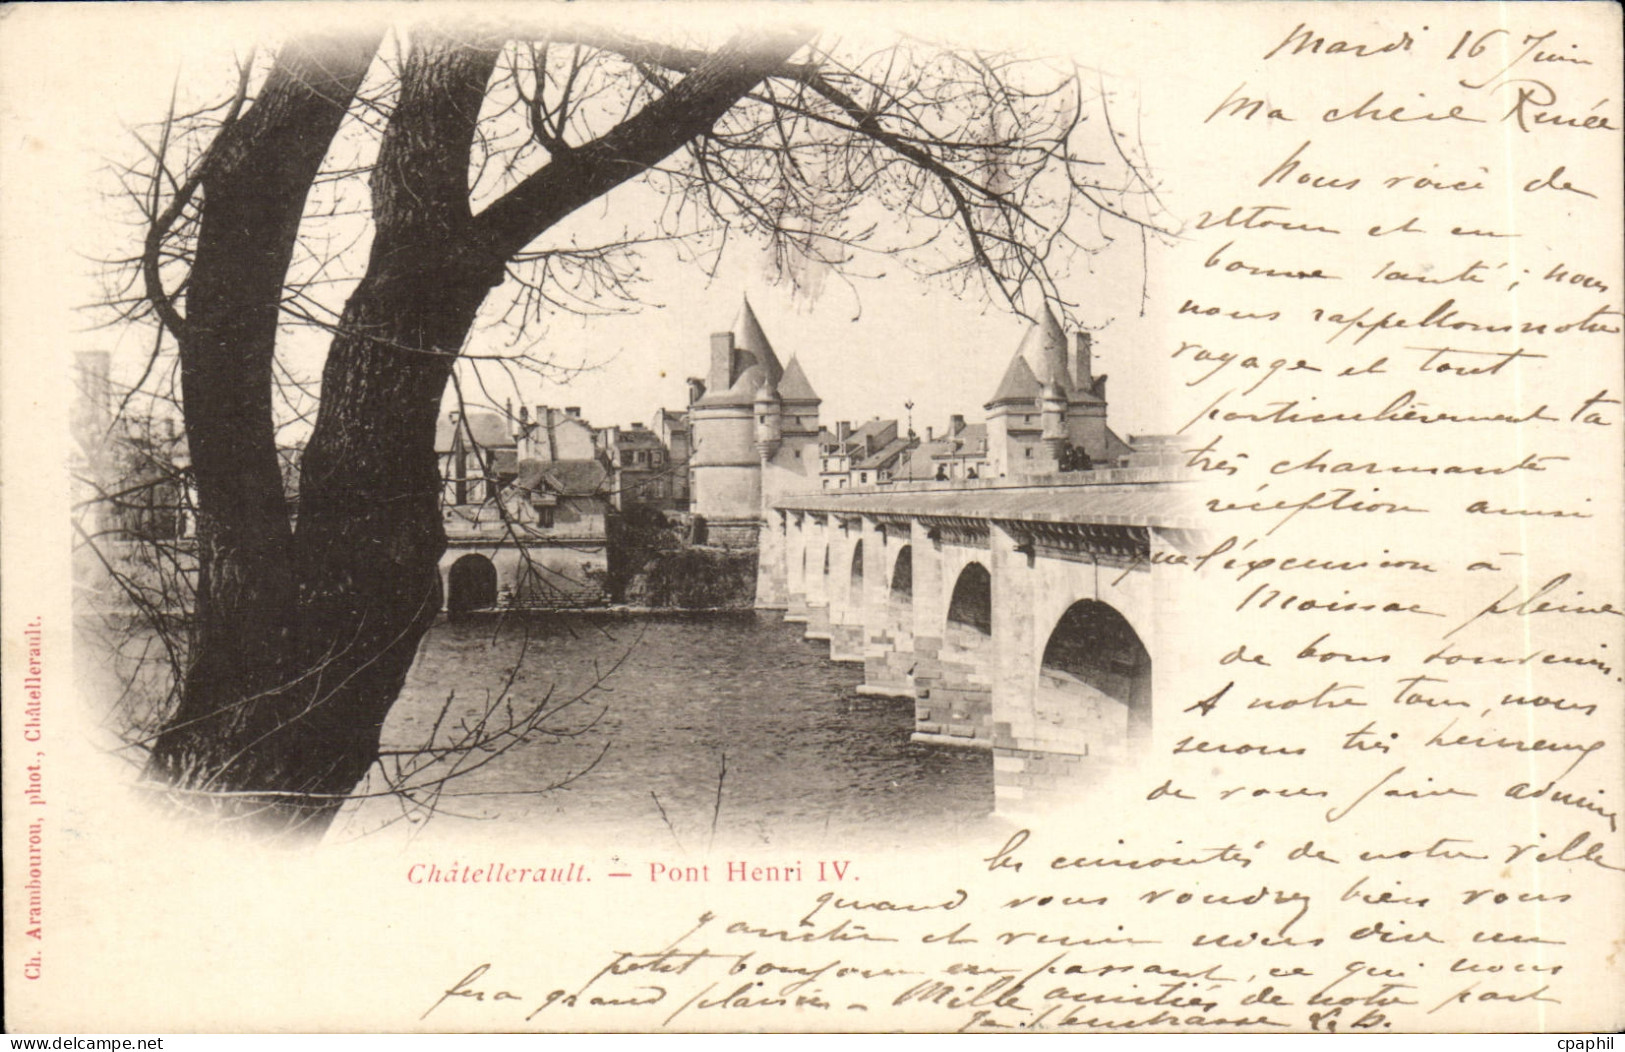 Mardi 16 Juin
Ma chère Renée
Nous voici de
retour et en
bonne santé ; nous
nous rappellons notre
voyage et tout
particulièrement ta
très charmante
réception ainsi
que l'excursion à
Moissac pleine
de bons souvenirs.
A notre tour, nous
serons très heureux
de vous faire admirer
les curiosités de notre ville
quand vous voudrez bien vous
y arrêter et venir nous dire un
petit bonjour en passant, ce qui nous
fera grand plaisir – Mille amitiés de notre part
Je t'embrasse L. D.
Châtellerault. — Pont Henri IV.
Ch. Arambourou, phot., Châtellerault.
cpaphil